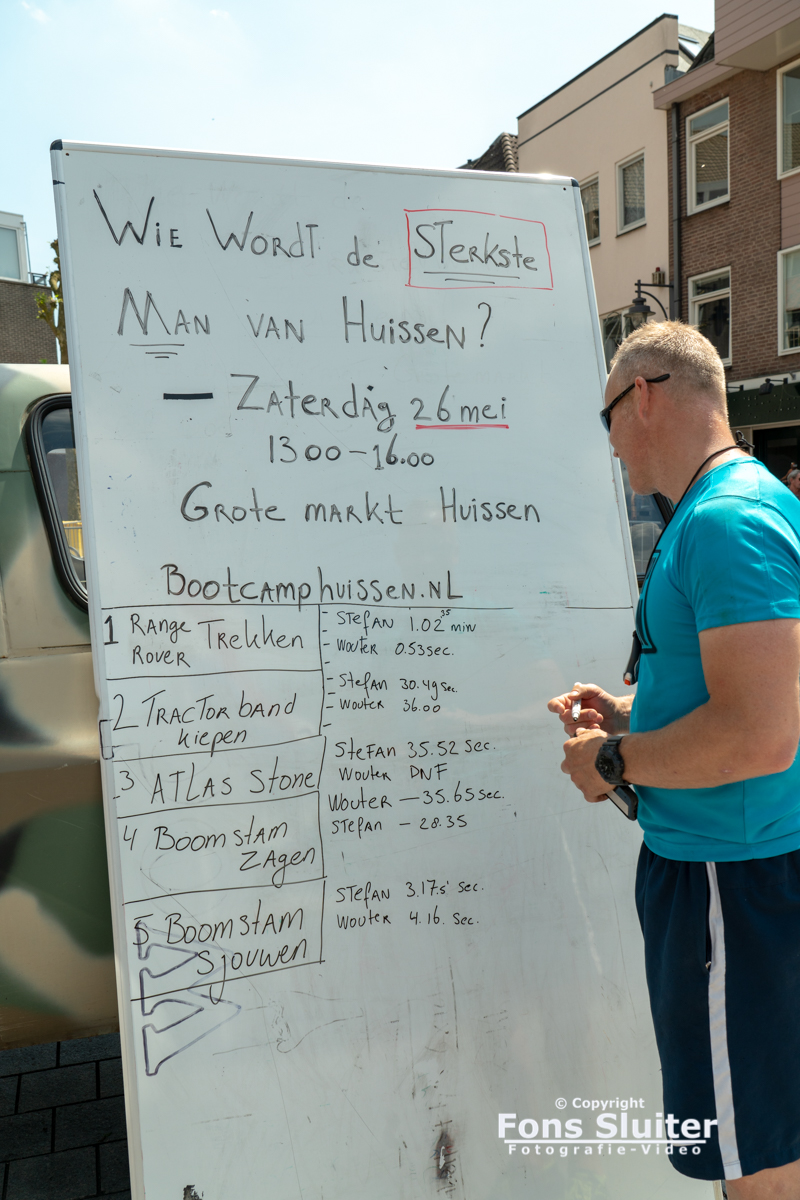 Wie Wordt de Sterkste
Man van Huissen?
— Zaterdag 26 mei
13.00-16.00
Grote markt Huissen
Bootcamphuissen.nl
1 Range Rover Trekken
- Stefan 1.02 35 min
- Wouter 0.53 sec.
2 Tractorband
kiepen
- Stefan 30.49 sec.
- Wouter 36.00
3 Atlas Stone
Stefan 35.52 sec.
Wouter DNF
4 Boomstam
zagen
Wouter — 35.65 sec.
Stefan — 28.35
5 Boomstam
Sjouwen
Stefan 3.17.5 sec.
Wouter 4.16. sec.
© Copyright
Fons Sluiter
Fotografie-Video